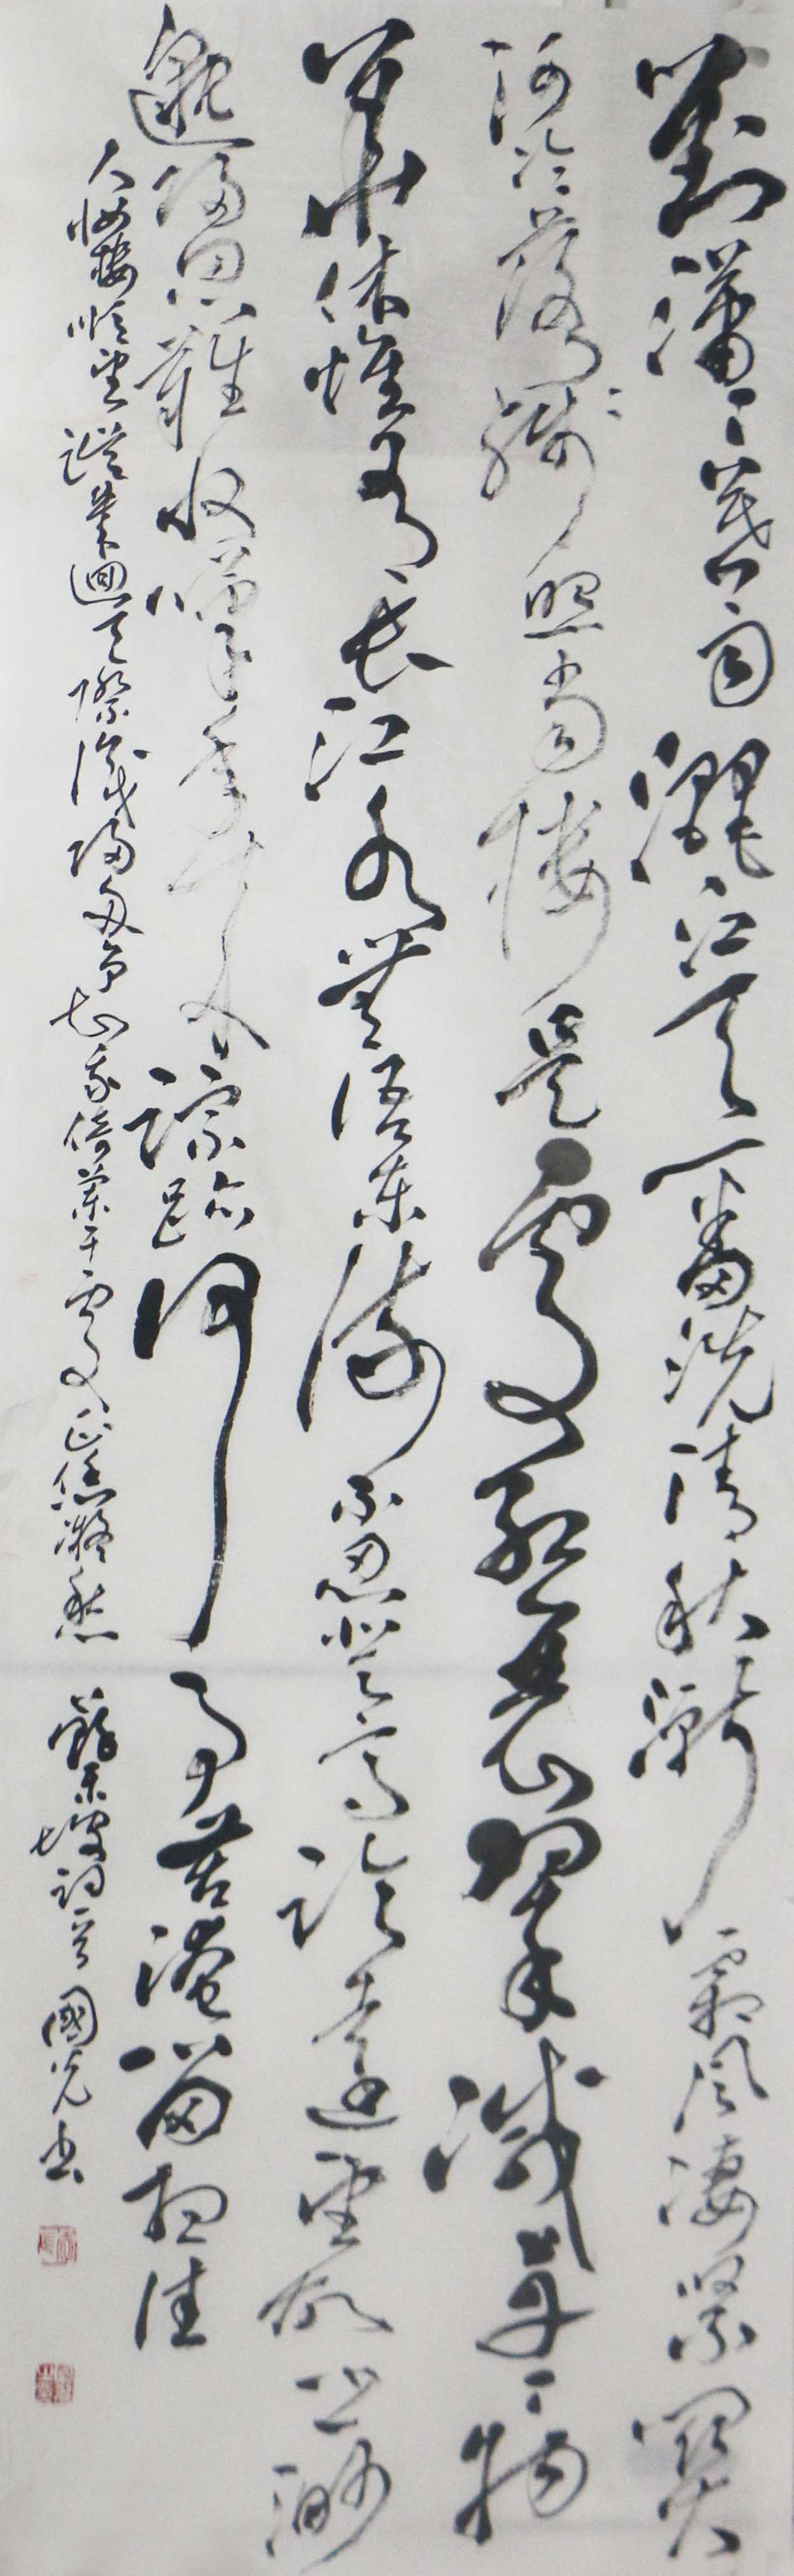 對瀟々暮雨灑江天一番洗清秋漸霜風凄緊關
河冷落殘照當樓是處紅衰翠減苒々物
華休惟有長江水無語東流不忍登高臨遠望故鄉渺
邈歸思難收嘆年來踪跡何事苦淹留想佳
人妝樓顒望誤幾迴天際識歸舟爭知我倚闌干處正恁凝愁 蘇東坡詞 國光书